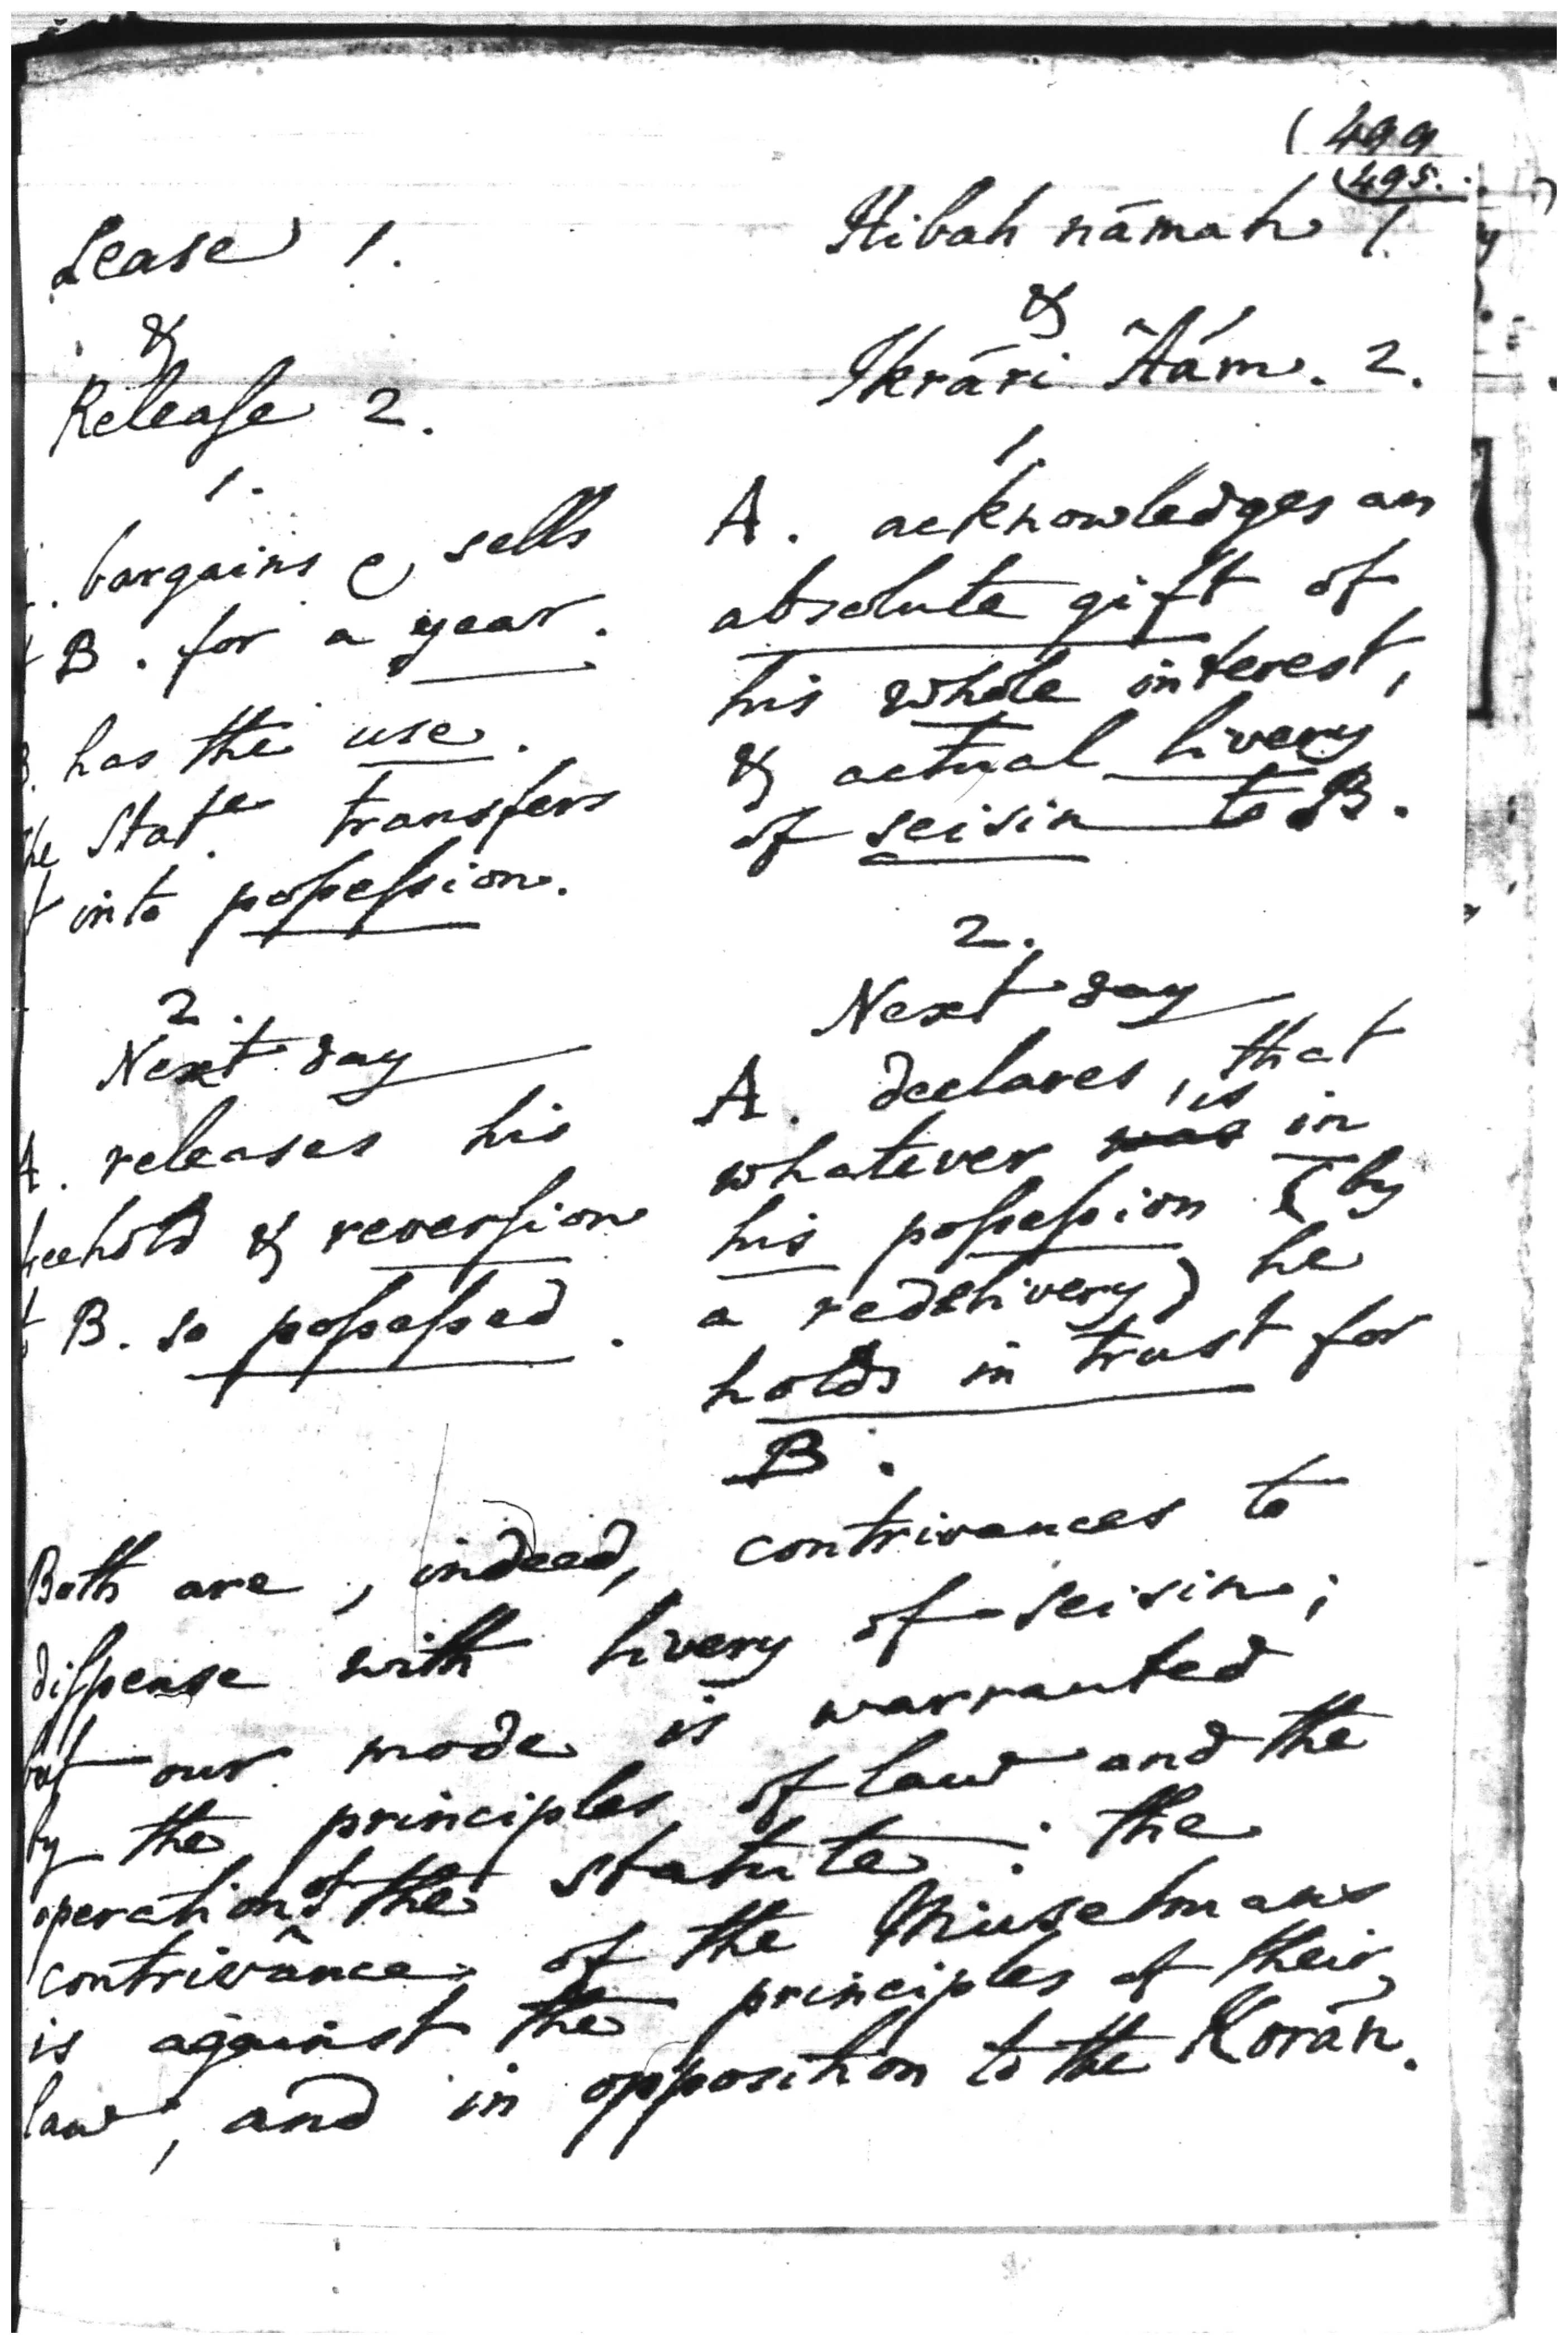 (499
(495.
Lease 1.
&
Release 2.
1.
bargains & sells
B. for a year.
B. has the use.
the Stat.e transfers
t into possession.
2.
Next day
A. releases his
freehold & reversion
to B. so possessed.
Hibah námah 1.
&
Ikrári Aám. 2.
1.
A. acknowledges an
absolute gift of
his whole interest,
& actual livery
of seisin to B.
2.
Next day
A. declares, that
whatever was is in
his possession (by
a redelivery) he
holds in trust for
B.
Both are, indeed, contrivances to
dispense with livery of seisin;
but our mode is warranted
by the principles of law and the
operation of the statute: the
contrivance of the Muselmans
is against the principles of their
law, and in opposition to the Korán.